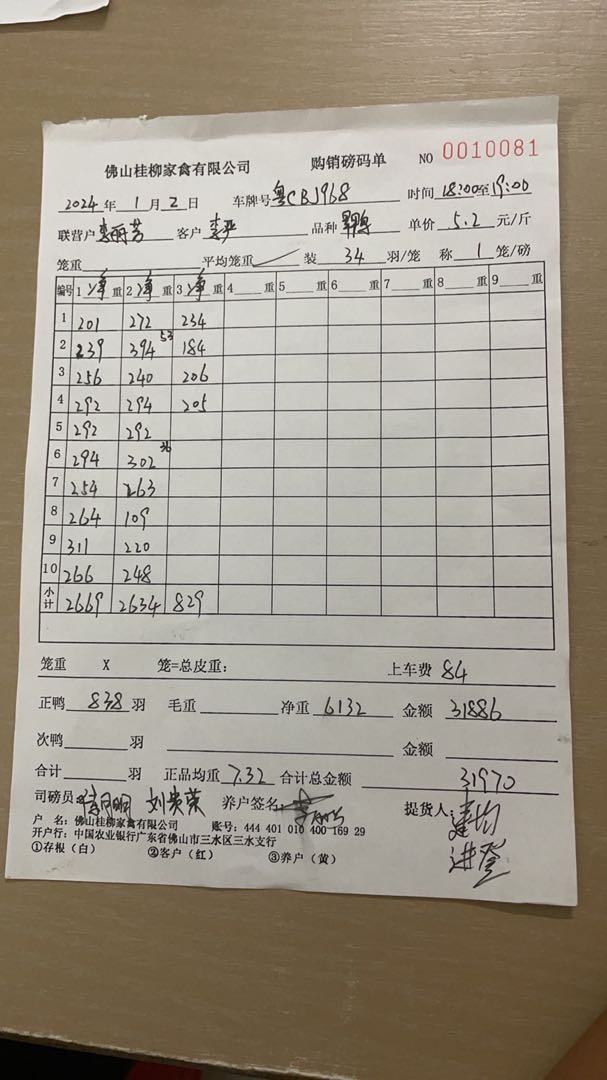 佛山桂柳家禽有限公司 购销磅码单 NO 0010081
2024 年 1 月 2 日 车牌号 粤CBJ968 时间 18:00至19:00
联营户 李丽芳 客户 李 品种 鸭 单价 5.2 元/斤
笼重 平均笼重 装 34 羽/笼 称 1 笼/磅
编号 1 净 重 2 净 重 3 净 重 4 重 5 重 6 重 7 重 8 重 9 重
1 201 272 234
2 239 394 53 184
3 256 240 206
4 292 294 205
5 292 292
6 294 302 36
7 254 263
8 264 109
9 311 220
10 266 248
小计 2669 2634 829
笼重 X 笼=总皮重: 上车费 84
正鸭 838 羽 毛重 净重 6132 金额 31886
次鸭 羽 金额
合计 羽 正品均重 7.32 合计总金额 31970
司磅员: 刘贵荣 养户签名: 提货人:
户 名: 佛山桂柳家禽有限公司 账号: 444 401 010 400 169 29
开户行: 中国农业银行广东省佛山市三水区三水支行
①存根(白) ②客户(红) ③养户(黄) 进登